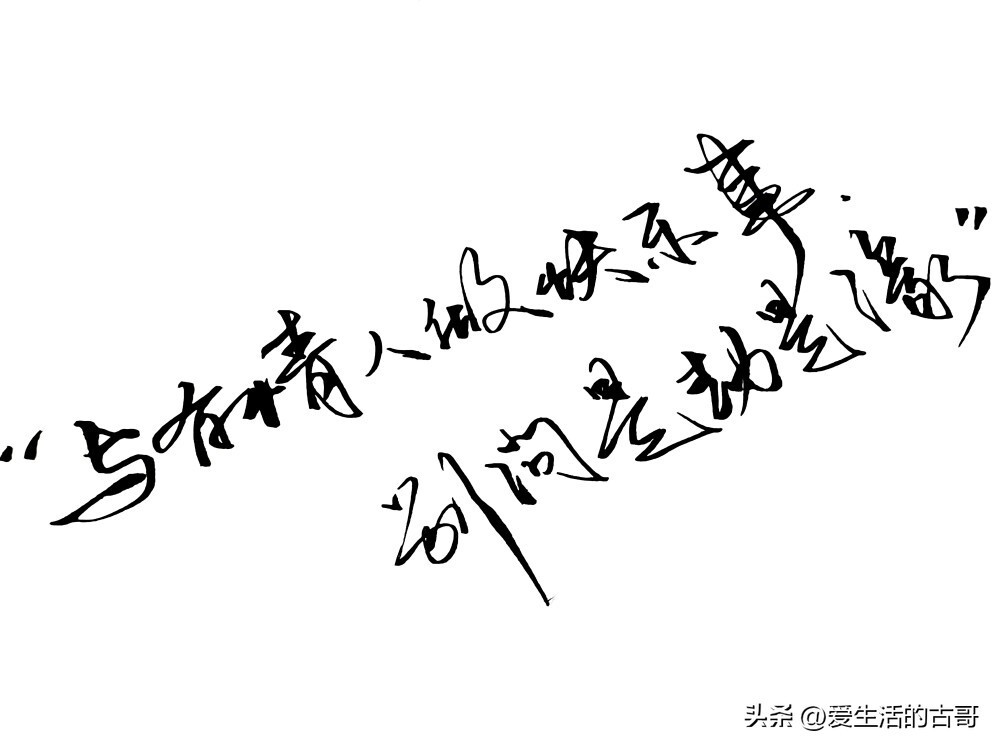 “与有情人做快乐事.
别问是劫是缘”
头条 @爱生活的古哥